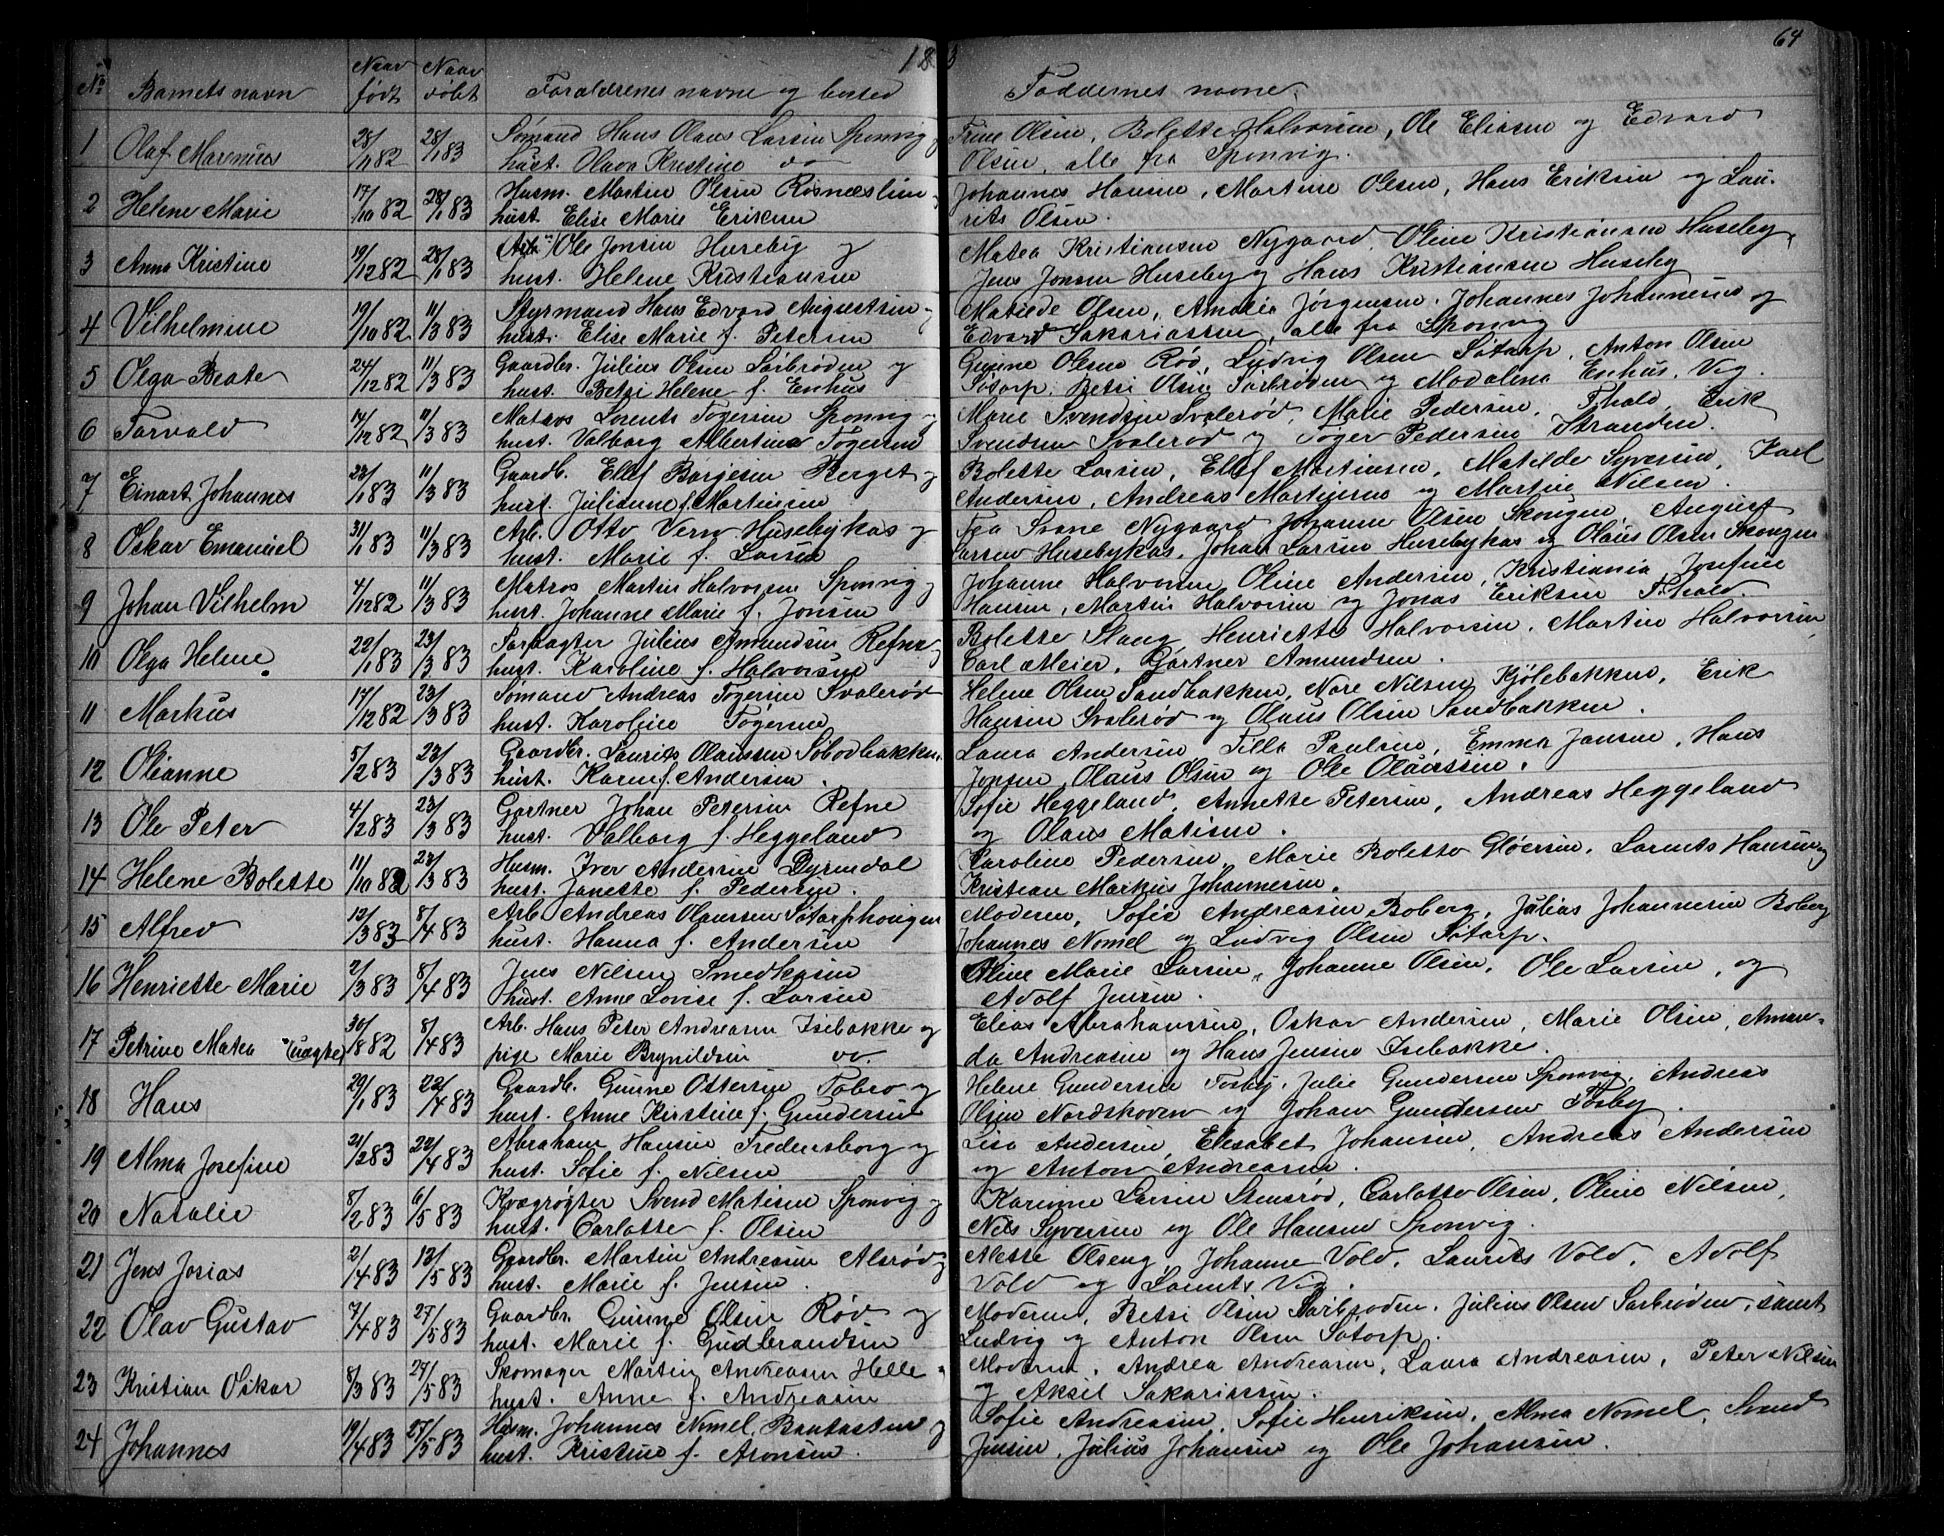 1883
64
No Barnets navn Naar født Naar døbt Forældrenes navne og bosted Faddernes navne.
1 Olaf Marenius 28/11 82 28/1 83 Sømand Hans Olaus Larsen Sponvig og Trine Olsen, Bolette Halvorsen, Ole Eliasen og Edvard
hust. Olava Kristine do Olsen, alle fra Sponvig.
2 Helene Marie 17/10 82 28/1 83 Husm. Martin Olsen Røsnæslien, Johannes Hansen, Martine Olsen, Hans Eriksen og Lau-
hust. Elise Marie Eriksen rits Olsen.
3 Anna Kristine 19/12 82 28/1 83 Arb. Ole Jonsen Huseby og Matea Kristiansen Nygaard, Oline Kristiansen Huseby,
hust. Helene Kristiansen Jens Jonsen Huseby og Hans Kristiansen Huseby
4 Vilhelmine 19/10 82 11/3 83 Styrmand Hans Edvard Augustsen og Matilde Olsen, Amalie Jørgensen, Johannes Johannesen og
hust. Elise Marie f. Petersen Edvard Sakariassen, alle fra Sponvig
5 Olga Beate 24/12 82 11/3 83 Gaardbr. Julius Olsen Sørbrøden og Gunne Olsen Rød, Ludvig Olsen Søtorp, Anton Olsen
hust. Betsi Helene f. Enhus Søtorp, Betsi Olsen Sørbrøden og Modalena Enhus, Vig.
6 Torvald 14/12 82 11/3 83 Matros Lorents Tøgersen Sponvig og Marie Svendsen Svalerød, Marie Pedersen, Fhald, Erik
hust. Valborg Albertine Tøgersen Svendsen Svalerød og Tøger Pedersen Stranden.
7 Einart Johannes 22/1 83 11/3 83 Gaardb. Ellef Børgesen Berget og Bolette Larsen, Ellef Martinsen, Matilde Syversen, Karl
hust. Julianne f. Martinsen Andersen, Andreas Martinsen og Martin Nilsen.
8 Oskar Emanuel 31/1 83 11/3 83 Arb. Otto Vern Husebykas og Fra Svane Nygaard, Johanne Olsen Skougen, August
hust. Marie f. Larsen Larsen Husebykas, Johan Larsen Husebykas og Olaus Olsen Skougen
9 Johan Vilhelm 4/12 82 11/3 83 Matros Martin Halvorsen Sponvig og Johanne Halvorsen, Oline Andersen, Kristiania, Josefine
hust. Johanne Marie f. Jonsen Hansen, Martin Halvorsen og Jonas Eriksen Fhald.
10 Olga Helene 22/1 83 23/3 83 Forpagter Julius Amundsen Refne og Bolette Stang, Henriette Halvorsen, Martin Halvorsen,
hust. Karoline f. Halvorsen Carl Meier, Gartner Amundsen.
11 Markus 17/12 82 23/3 83 Sømand Andreas Tøgersen Svalerød Helene Olsen Sandbakken, Nore Nilsen Kjølebakken, Erik
hust. Karoline Tøgersen Hansen Svalerød og Olaus Olsen Sandbakken.
12 Olianne 5/2 83 23/3 83 Gaardbr. Laurits Olaussen Søbodbakken, Laura Andersen, Tilla Paulsen, Emma Jansen, Hans
hust. Karen f. Andersen. Jensen, Olaus Olsen og Ole Olaussen.
13 Ole Peter 4/2 83 23/3 83 Gartner Johan Petersen Refne Sofie Heggeland, Annette Petersen, Andreas Heggeland
hust. Valborg f. Heggeland og Olaus Matisen.
14 Helene Bolette 11/10 82 23/3 83 Husm. Iver Andersen Dyrendal Karoline Pedersen, Marie Bolette Gløersen, Lorents Hansen og
hust. Janette f. Pedersen. Kristian Markus Johannesen.
15 Alfred 12/3 83 8/4 83 Arb. Andreas Olaussen Søtorphougen Moderen, Sofie Andreasen Boberg, Julius Johannesen Boberg
hust. Hanna f. Andersen Johannes Nomel og Ludvig Olsen Søtorp.
16 Henriette Marie 2/3 83 8/4 83 Jens Nilsen Smedkasen Oline Marie Larsen, Johanne Olsen, Ole Larsen, og
hust. Anne Lovise f. Larsen Adolf Jensen.
17 Petrine Matea (uægte) 30/8 82 8/4 83 Arb. Hans Peter Andreasen Isebakke og Elias Abrahamsen, Oskar Andersen, Marie Olsen, Aman-
pige Marie Brynildsen do da Andreasen og Hans Jensen Isebakke.
18 Hans 29/1 83 22/4 83 Gaardb. Gunne Ottersen Tobro og Helene Gundersen Torsby, Julie Gundersen Sponvig, Andreas
hust. Anne Kirstine f. Gundersen Olsen Nordskoven og Johan Gundersen Torsby.
19 Alma Josefine 21/2 83 22/4 83 Abraham Hansen Fredensborg og Lisa Andersen, Elisabet Johansen, Andreas Andersen
hust. Sofie f. Nilsen og Anton Andreasen.
20 Natalie 8/2 83 6/5 83 Kvægrøgter Svend Matisen Sponvig og Karinne Larsen Stensrød, Carlotte Olsen, Oline Nilsen,
hust. Carlotte f. Olsen Nils Syversen og Ole Hansen Sponvig.
21 Jens Josias 2/4 83 13/5 83 Gaardbr. Martin Andreasen Alsrød og Alette Olseng, Johanne Vold, Laurits Vold, Adolf
hust. Marie f. Jensen. Vold og Laurits Vig.
22 Olav Gustav 7/4 83 27/5 83 Gaardbr. Gunne Olsen Rød og Moderen, Betsi Olsen Sørbrøden, Julius Olsen Sørbrøden, samt
hust. Marie f. Gudbrandsen Ludvig og Anton Olsen Søtorp.
23 Kristian Oskar 8/3 83 27/5 83 Skomager Martin Andreasen Helle og Moderen, Andrea Andreasen, Laura Andreasen, Peter Nilsen
hust. Anne f. Andreasen og Aksel Sakariassen.
24 Johannes 19/4 83 27/5 83 Husm. Johannes Nomel, Bautasten og Sofie Andreasen, Sofie Henriksen, Alma Nomel, Svend
hust. Kristine f. Aronsen. Jensen, Julius Johansen og Ole Johansen.